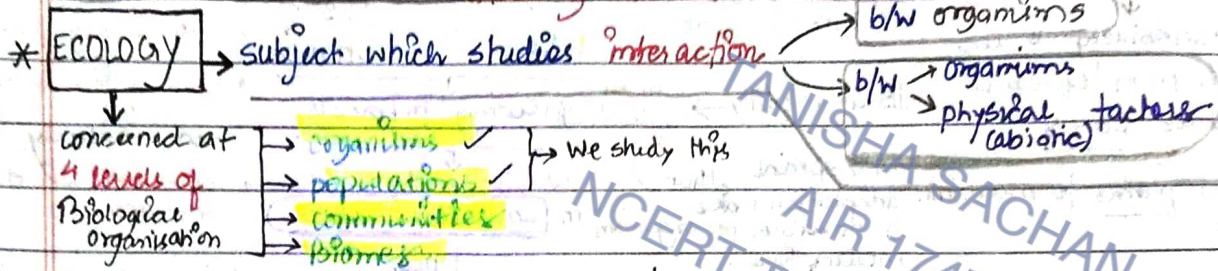 * ECOLOGY → subject which studies interaction → b/w organisms
→ b/w → organisms
→ physical factors
(abiotic)
concerned at
4 levels of
Biological
organisation
→ organisms ✓
→ populations ✓
→ communities
→ Biomes
→ We study this
TANISHA SACHAN
AIR 174
NCERT